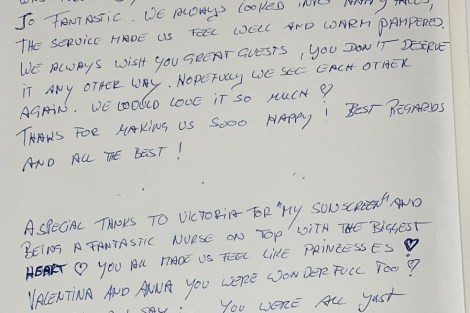 SO FANTASTIC. WE ALWAYS LOOKED INTO HAPPY FACES,
THE SERVICE MADE US FEEL WELL AND WARM PAMPERED.
WE ALWAYS WISH YOU GREAT GUESTS, YOU DON'T DESERVE
IT ANY OTHER WAY. HOPEFULLY WE SEE EACH OTHER
AGAIN. WE WOULD LOVE IT SO MUCH ♡
THANKS FOR MAKING US SOOO HAPPY! BEST REGARDS
AND ALL THE BEST!
A SPECIAL TANKS TO VICTORIA FOR "MY SUNSCREEN" AND
BEING A FANTASTIC NURSE ON TOP WITH THE BIGGEST
HEART ♡ YOU ALL MADE US FEEL LIKE PRINZESSES ♡
VALENTINA AND ANNA YOU WERE WONDERFULL TOO ♡
SAY! YOU WERE ALL JUST